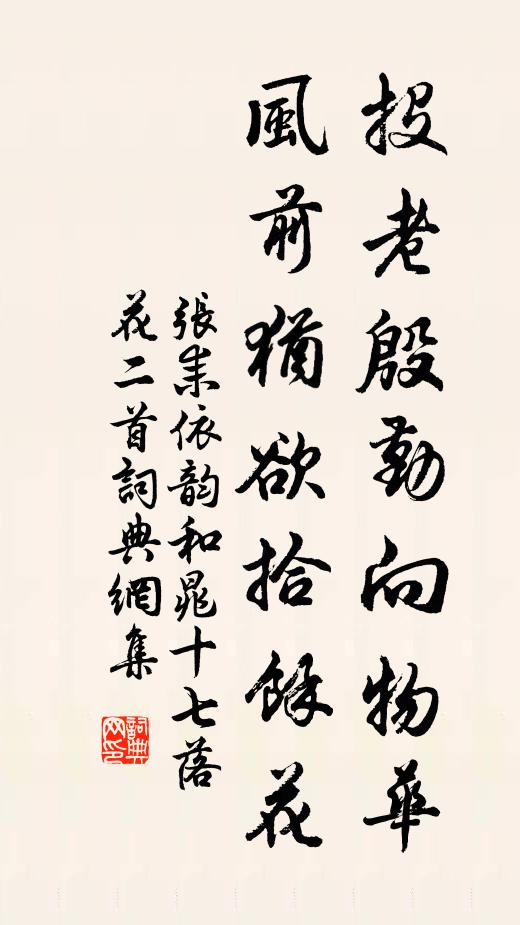 投老殷勤向物華
風前猶欲拾餘花
張耒依韵和晁十七落
花二首詞典網集
詞典网印